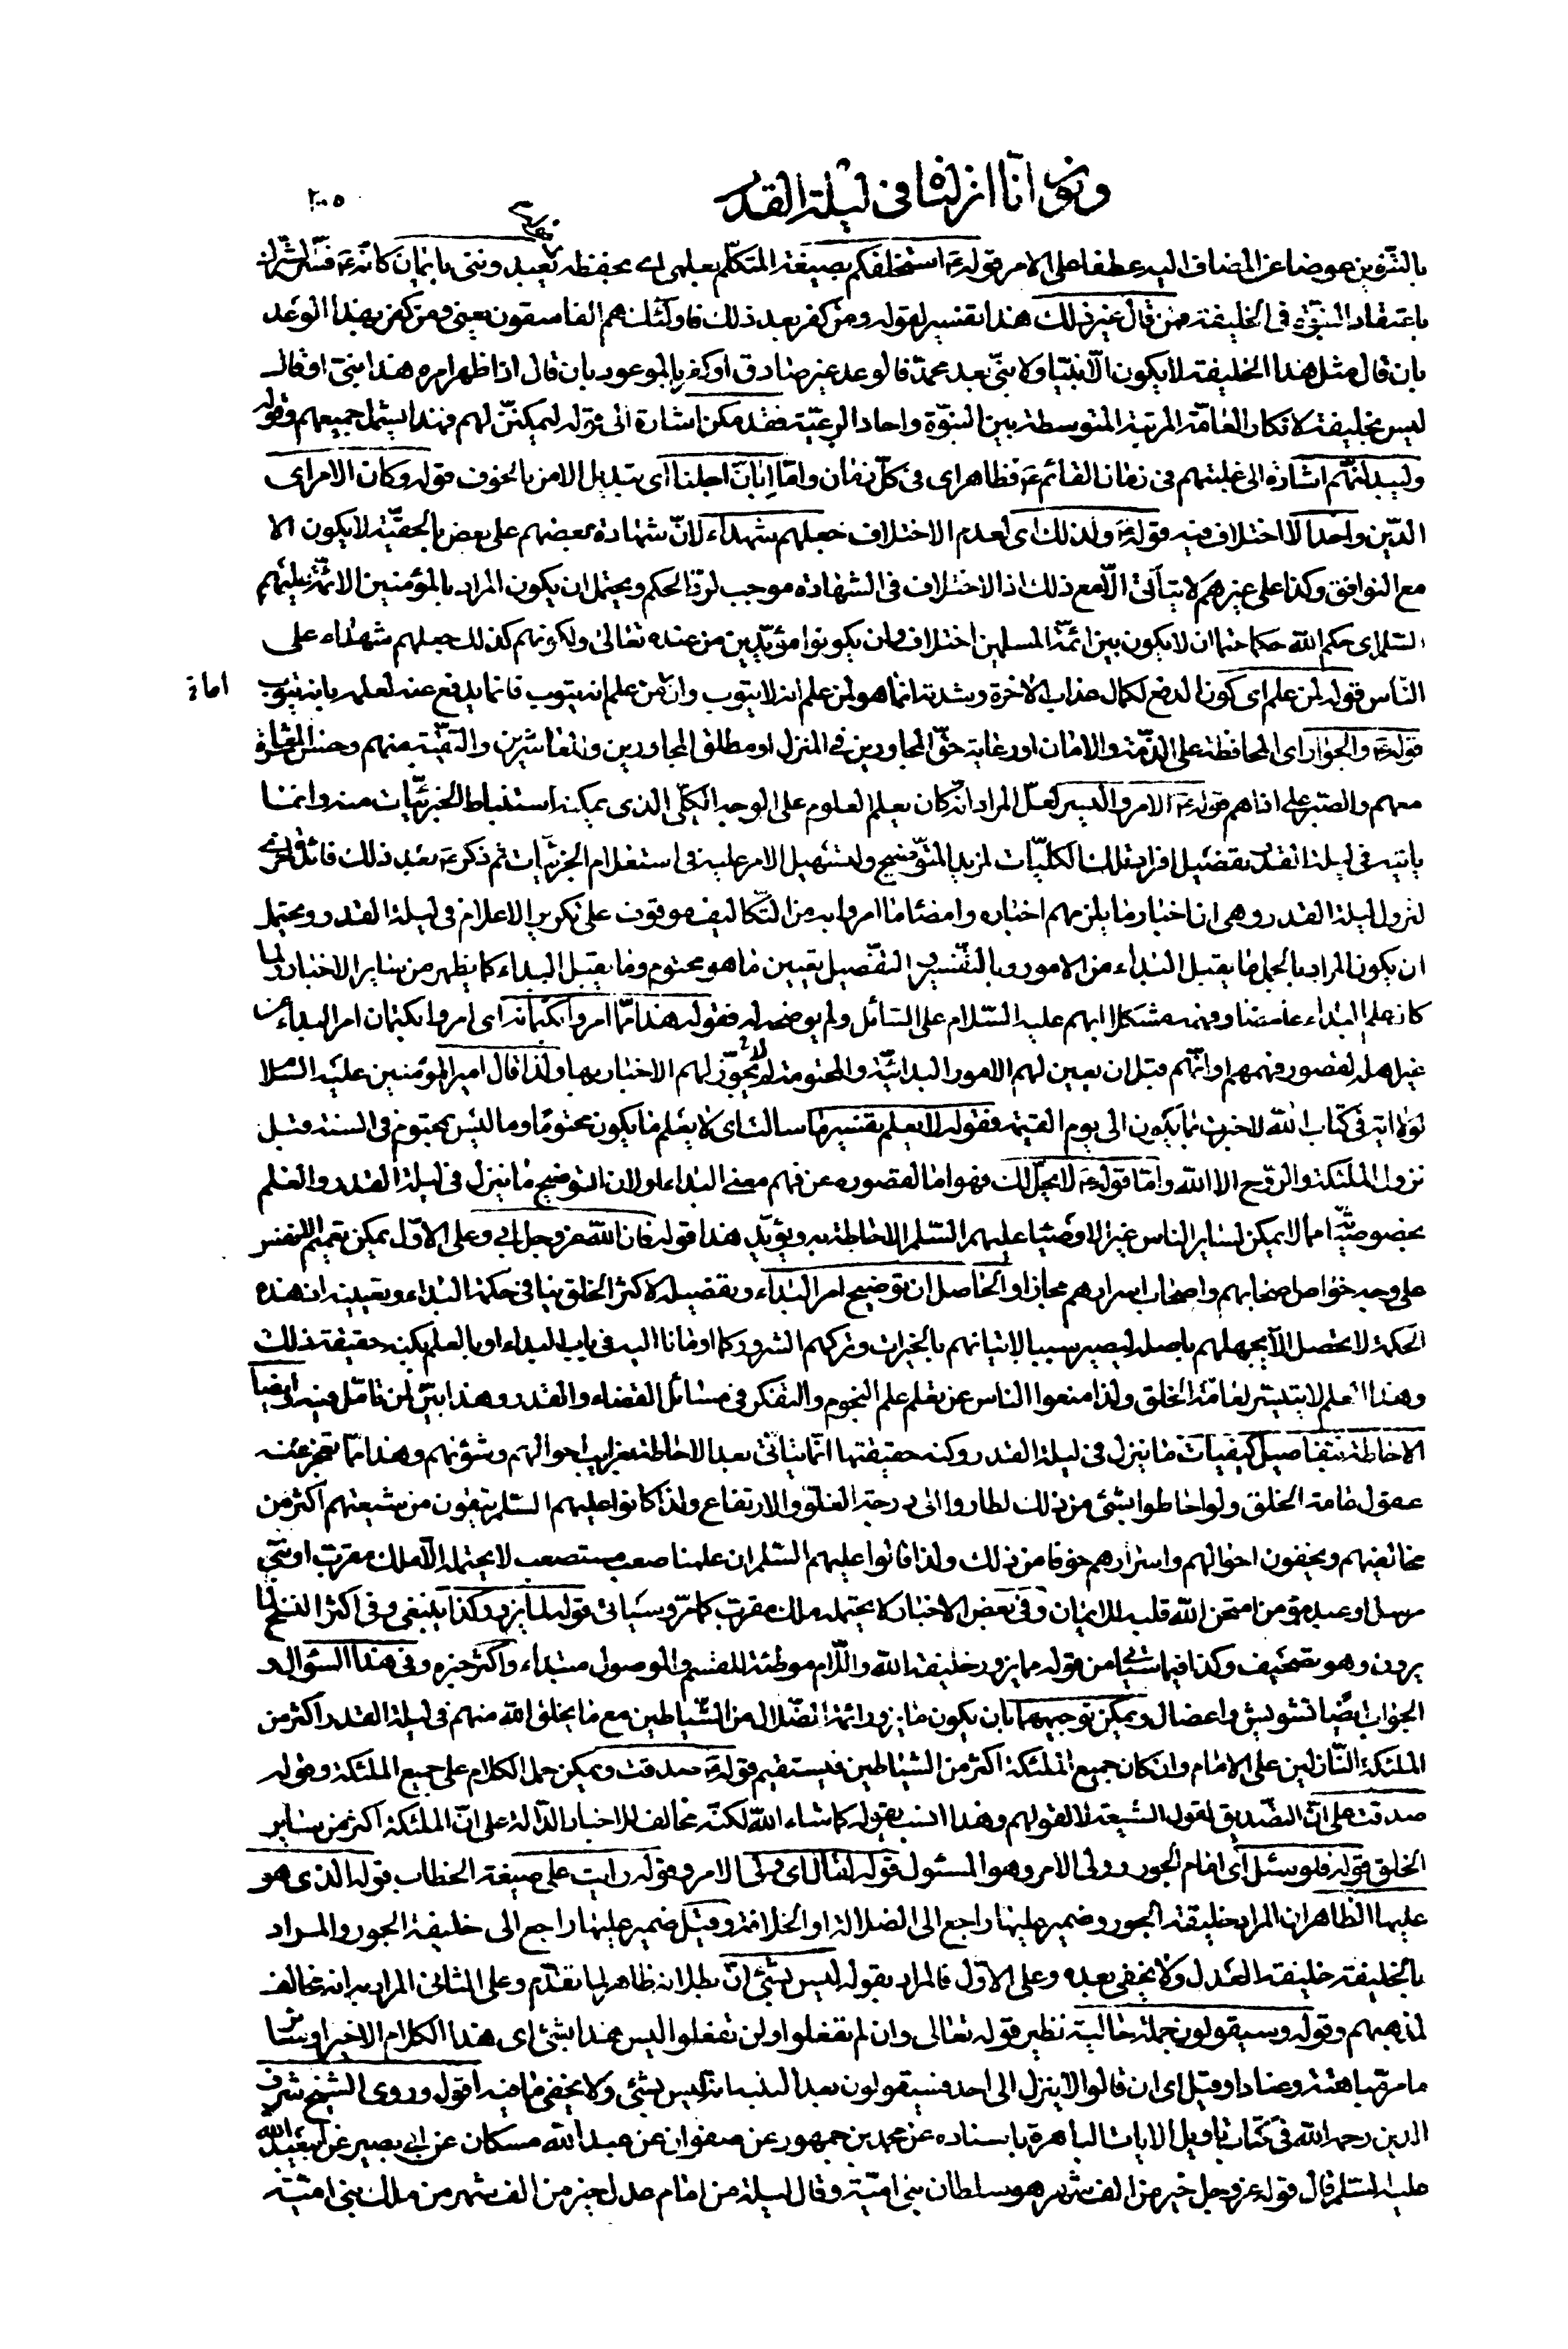 وتفسير انا انزلناه فى ليلة القدر
٢٠٥
بالتنوين عوضا عن المضاف اليه عطفا على الامر قوله ع استخلفكم بصيغة المتكلم بعلمى اى بحفظه يعبدوننى بايمان كانه ع فسر الشرك
باعتقاد النبوة فى الخليفة فمن قال غير ذلك هذا تفسير لقوله ومن كفر بعد ذلك فاولئك هم الفاسقون يعنى ومن كفر بهذا الوعد
بان قال مثل هذا الخليفة لا يكون الا نبيا ولا نبى بعد محمد فالوعد غير صادق او كفر بالموعود بان قال اذا ظهر امره هذا نبى او قال
ليس بخليفة لانكار العامة المرتبة المتوسطة بين النبوة واحاد الرعية فقد مكن اشارة الى قوله ليمكنن لهم فهذا يشمل جميعهم وقوله
وليبدلنهم اشارة الى غلبتهم فى زمان القائم ع فظاهر اى فى كل زمان واما ابان اجلنا اى تبديل الامن بالخوف قوله وكان الامر اى
الدين واحدا لا اختلاف فيه قوله ع ولذلك اى لعدم الاختلاف جعلهم شهداء لان شهادة بعضهم على بعض بالحقية لا يكون الا
مع التوافق وكذا على غيرهم لا يتأتى الا مع ذلك اذ الاختلاف فى الشهادة موجب لرد الحكم ويحتمل ان يكون المراد بالمؤمنين الائمة عليهم
السلم اى حكم الله حكما حتما ان لا يكون بين ائمة المسلمين اختلاف وان يكونوا مؤيدين من عنده تعالى ولكونهم كذلك جعلهم شهداء على
الناس قوله لمن علم اى كون الدفع لكمال عذاب الاخرة وشدته انما هو لمن علم انه لا يتوب وان من علم انه يتوب فانما يدفع عنه لعلمه بانه يتوب
قوله ع والجوار اى المحافظة على الذمة والامان او رعاية حق المجاورين فى المنزل او مطلق المجاورين والمعاشرين والتقية منهم وحسن المعاشرة
معهم والصبر على اذاهم قوله ع الامر واليسر لعل المراد انه كان يعلم العلوم على الوجه الكلى الذى يمكنه استنباط الجزئيات منه وانما
ياتيه فى ليلة القدر تفصيل افراد تلك الكليات لمزيد التوضيح ولتسهيل الامر عليه فى استعلام الجزئيات ثم ذكر ع بعد ذلك فائدة اخرى
لنزول ليلة القدر وهى ان اخبار ما يلزمهم اخباره وامضاء ما امروا به من التكاليف موقوف على تكرير الاعلام فى ليلة القدر ويحتمل
ان يكون المراد بالجمل ما يقبل البداء من الامور وبالتفسير والتفصيل تعيين ما هو محتوم وما يقبل البداء كما يظهر من ساير الاخبار ولما
كان علم البداء غامضا وفهمه مشكلا ابهم عليه السلام على السائل ولم يوضحه له فقوله هذا مما امروا بكتمانه اى امروا بكتمان امر البداء عن
غير اهله لقصور فهمهم او انهم قبل ان يعين لهم الامور البدائية والمحتومة لا يجوز لهم الاخبار بها ولذا قال امير المؤمنين عليه السلا
لولا اية فى كتاب الله لاخبرت بما يكون الى يوم القيمة فقوله لا يعلم تفسير ما سالت اى لا يعلم ما يكون محتوما وما ليس بمحتوم فى السنة قبل
نزول الملئكة والروح الا الله واما قوله ع لا يحل لك فهو اما لقصوره عن فهم معنى البداء او لان توضيح ما ينزل فى ليلة القدر والعلم
بخصوصياته مما لا يمكن لساير الناس غير الاوصياء عليهم السلم الاحاطة به ويؤيد هذا قوله فان الله عز وجل ابى وعلى الاول يمكن تعميم الانفس
على وجه خواص اصحابهم واصحاب اسرارهم مجازا والحاصل ان توضيح امر البداء وتفصيله لاكثر الخلق ينافى حكمة البداء وتعيينه اذ هذه
الحكمة لا تحصل الا بجهلهم باصله ليصير سببا لاتيانهم بالخيرات وتركهم الشرور كما اومانا اليه فى باب البداء او بالعلم بكنه حقيقة ذلك
وهذا العلم لا يتيسر لعامة الخلق ولذا منعوا الناس عن تعلم علم النجوم والتفكر فى مسائل القضاء والقدر وهذا بين لمن تامل فيه وايضا
الاحاطة بتفاصيل كيفيات ما ينزل فى ليلة القدر وكنه حقيقتها انما يتاتى بعد الاحاطة بغرايب احوالهم وشؤنهم وهذا مما تعجز عنه
عقول عامة الخلق ولو احاطوا بشئ من ذلك لطاروا الى درجة الغلو والارتفاع ولذا كانوا عليهم السلم يتقون من شيعتهم اكثر من
مخالفيهم ويخفون احوالهم واسرارهم خوفا من ذلك ولذا قالوا عليهم السلم ان علمنا صعب مستصعب لا يحتمله الا ملك مقرب او نبى
مرسل او عبد مؤمن امتحن الله قلبه للايمان وفى بعض الاخبار لا يحتمله ملك مقرب كما مر وسياتى قوله لما يزور وكذا ينبغى وفى اكثر النسخ لما
يرون وهو تصحيف وكذا فيما سياتى من قوله مما يزور خليفة الله واللام موطئة للقسم والموصول مبتداء واكثر خبره وفى هذا السؤال و
الجواب ايضا تشويش واعضال ويمكن توجيهها بان يكون ما يزور ائمة الضلال من الشياطين مع ما يخلق الله منهم فى ليلة القدر اكثر من
الملئكة النازلين على الامام وان كان جميع الملئكة اكثر من الشياطين فيستقيم قوله ع صدقت ويمكن حمل الكلام على جميع الملئكة وقوله
صدقت على ان التصديق لقول الشيعة لا لقولهم وهذا انسب بقوله كما شاء الله لكنه مخالف للاخبار الدالة على ان الملئكة اكثر من ساير
الخلق قوله فلو سئل اى امام الجور وولى الامر وهو المسئول قوله لقال اى ولى الامر وقوله رايت على صيغة الخطاب قوله الذى هو
عليها الظاهر ان المراد خليفة الجور وضمير عليها راجع الى الضلالة او الخلافة وقيل ضمير عليها راجع الى خليفة الجور والمراد
بالخليفة خليفة العدل ولا يخفى بعده وعلى الاول فالمراد بقوله ليس بشئ ان بطلانه ظاهر لما تقدم وعلى الثانى المراد به انه مخالف
لمذهبهم وقوله وسيقولون جملة حالية نظير قوله تعالى وان لم تفعلوا ولن تفعلوا ليس هذا بشئ اى هذا الكلام الاخير او ساير
ما مر مباهتة وعنادا وقيل اى ان قالوا لا ينزل الى احد فسيقولون بعد التنبيه انه ليس بشئ ولا يخفى ما فيه اقول وروى الشيخ شرف
الدين رحمه الله فى كتاب تاويل الايات الباهرة باسناده عن محمد بن جمهور عن صفوان عن عبد الله مسكان عن ابى بصير عن ابى عبد الله
عليه السلم قال قوله عز وجل خير من الف شهر هو سلطان بنى امية وقال ليلة من امام عدل خير من الف شهر من ملك بنى امية